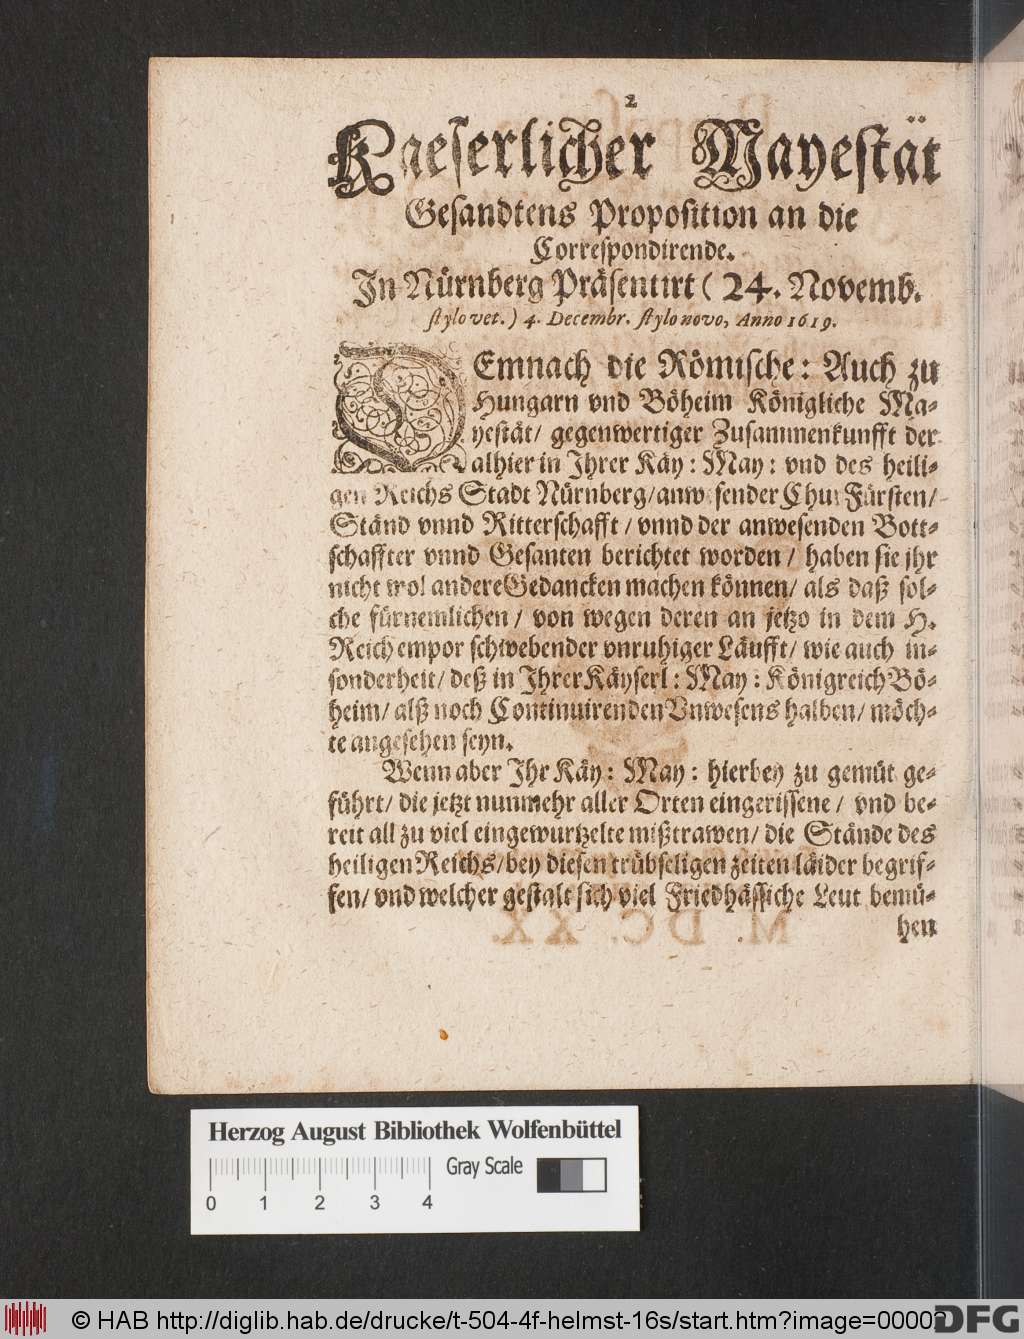 2
Kaeserlicher Mayestät
Gesandtens Proposition an die
Correspondirende.
In Nürnberg Präsentirt ( 24. Novemb.
stylo vet. ) 4. Decembr. stylo novo, Anno 1619.
DEmnach die Römische: Auch zu
Hungarn vnd Böheim Königliche Ma-
yestät/ gegenwertiger Zusammenkunfft der
alhier in Ihrer Käy: May: vnd des heili-
gen Reichs Stadt Nürnberg/ anwesender Chur Fürsten/
Ständ vnnd Ritterschafft/ vnnd der anwesenden Bott-
schaffter vnnd Gesanten berichtet worden/ haben sie jhr
nicht wol andere Gedancken machen können/ als daß sol-
che fürnemlichen/ von wegen deren an jetzo in dem H.
Reich empor schwebender vnruhiger Läufft/ wie auch in-
sonderheit/ deß in Ihrer Käyserl: May: Königreich Bö-
heim/ alß noch Continuirenden Vnwesens halben/ möch-
te angesehen seyn.
Wenn aber Ihr Käy: May: hierbey zu gemüt ge-
führt/ die jetzt nunmehr aller Orten eingerissene/ vnd be-
reit all zu viel eingewurtzelte mißtrawen/ die Stände des
heiligen Reichs/ bey diesen trübseligen zeiten läider begrif-
fen/ vnd welcher gestalt sich viel Friedhässiche Leut bemü-
hen
M. DC. XX.
Herzog August Bibliothek Wolfenbüttel
Gray Scale
0 1 2 3 4
© HAB http://diglib.hab.de/drucke/t-504-4f-helmst-16s/start.htm?image=00002
DFG